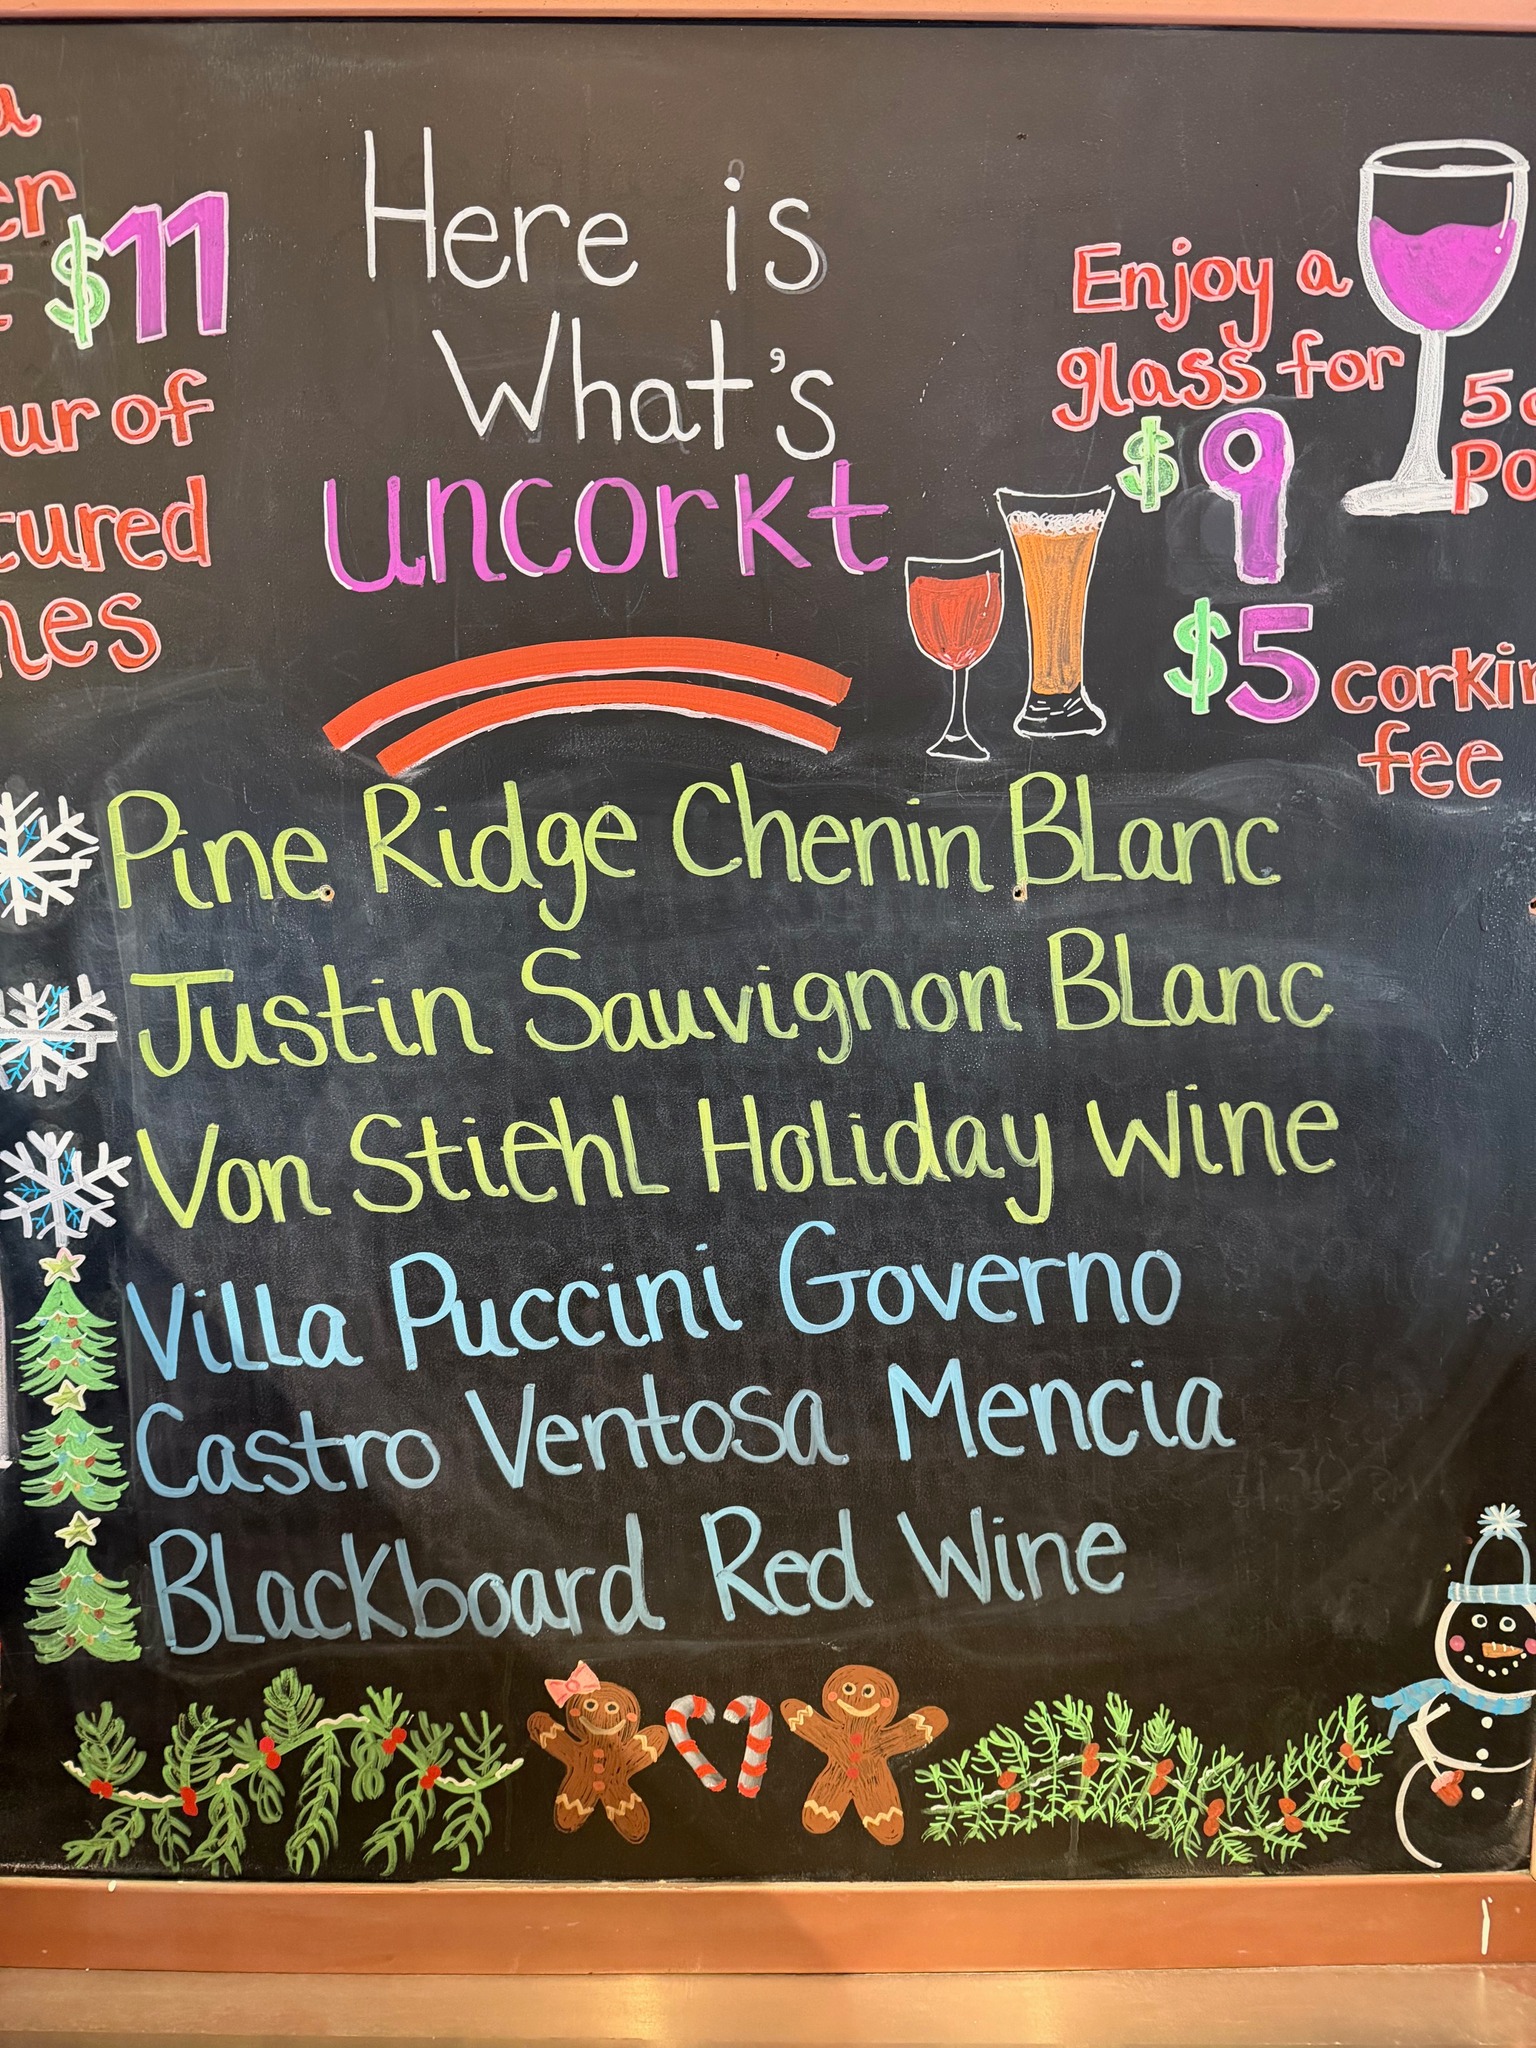 $11
Here is
What's
uncorkt
Enjoy a
glass for
$9
$5
fee
Pine Ridge Chenin Blanc
Justin Sauvignon Blanc
Von Stiehl Holiday Wine
Villa Puccini Governo
Castro Ventosa Mencia
Blackboard Red Wine